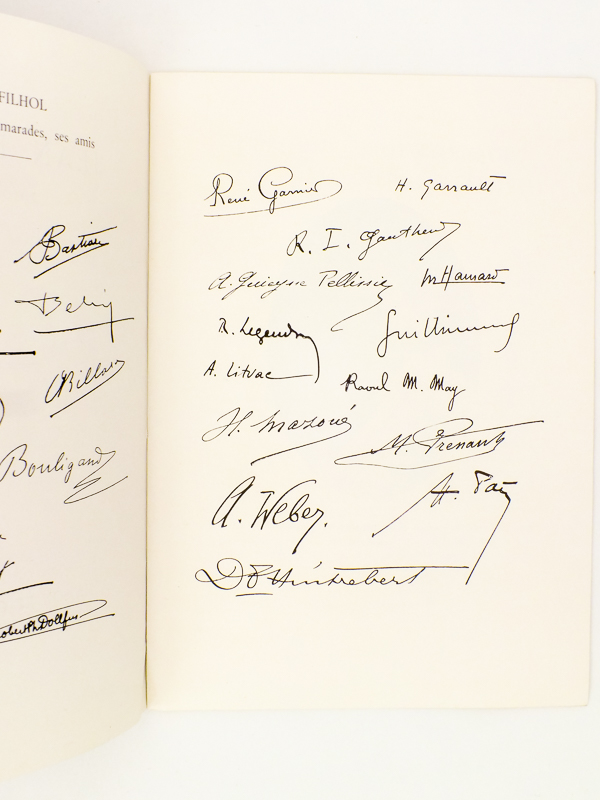 FILHOL
marades, ses amis
Bastian
Belin
Billard
Bouligand
Robert Ph Dollfus
René Garnier H. Garrault
R. I. Gauthier
A. Guieysse Pellissier M Hamard
R. Legendre Guillermond
A. Litvac Raoul M. May
H. Mazoué
M. Prenant
A. Weber.
Dr Hintrebert